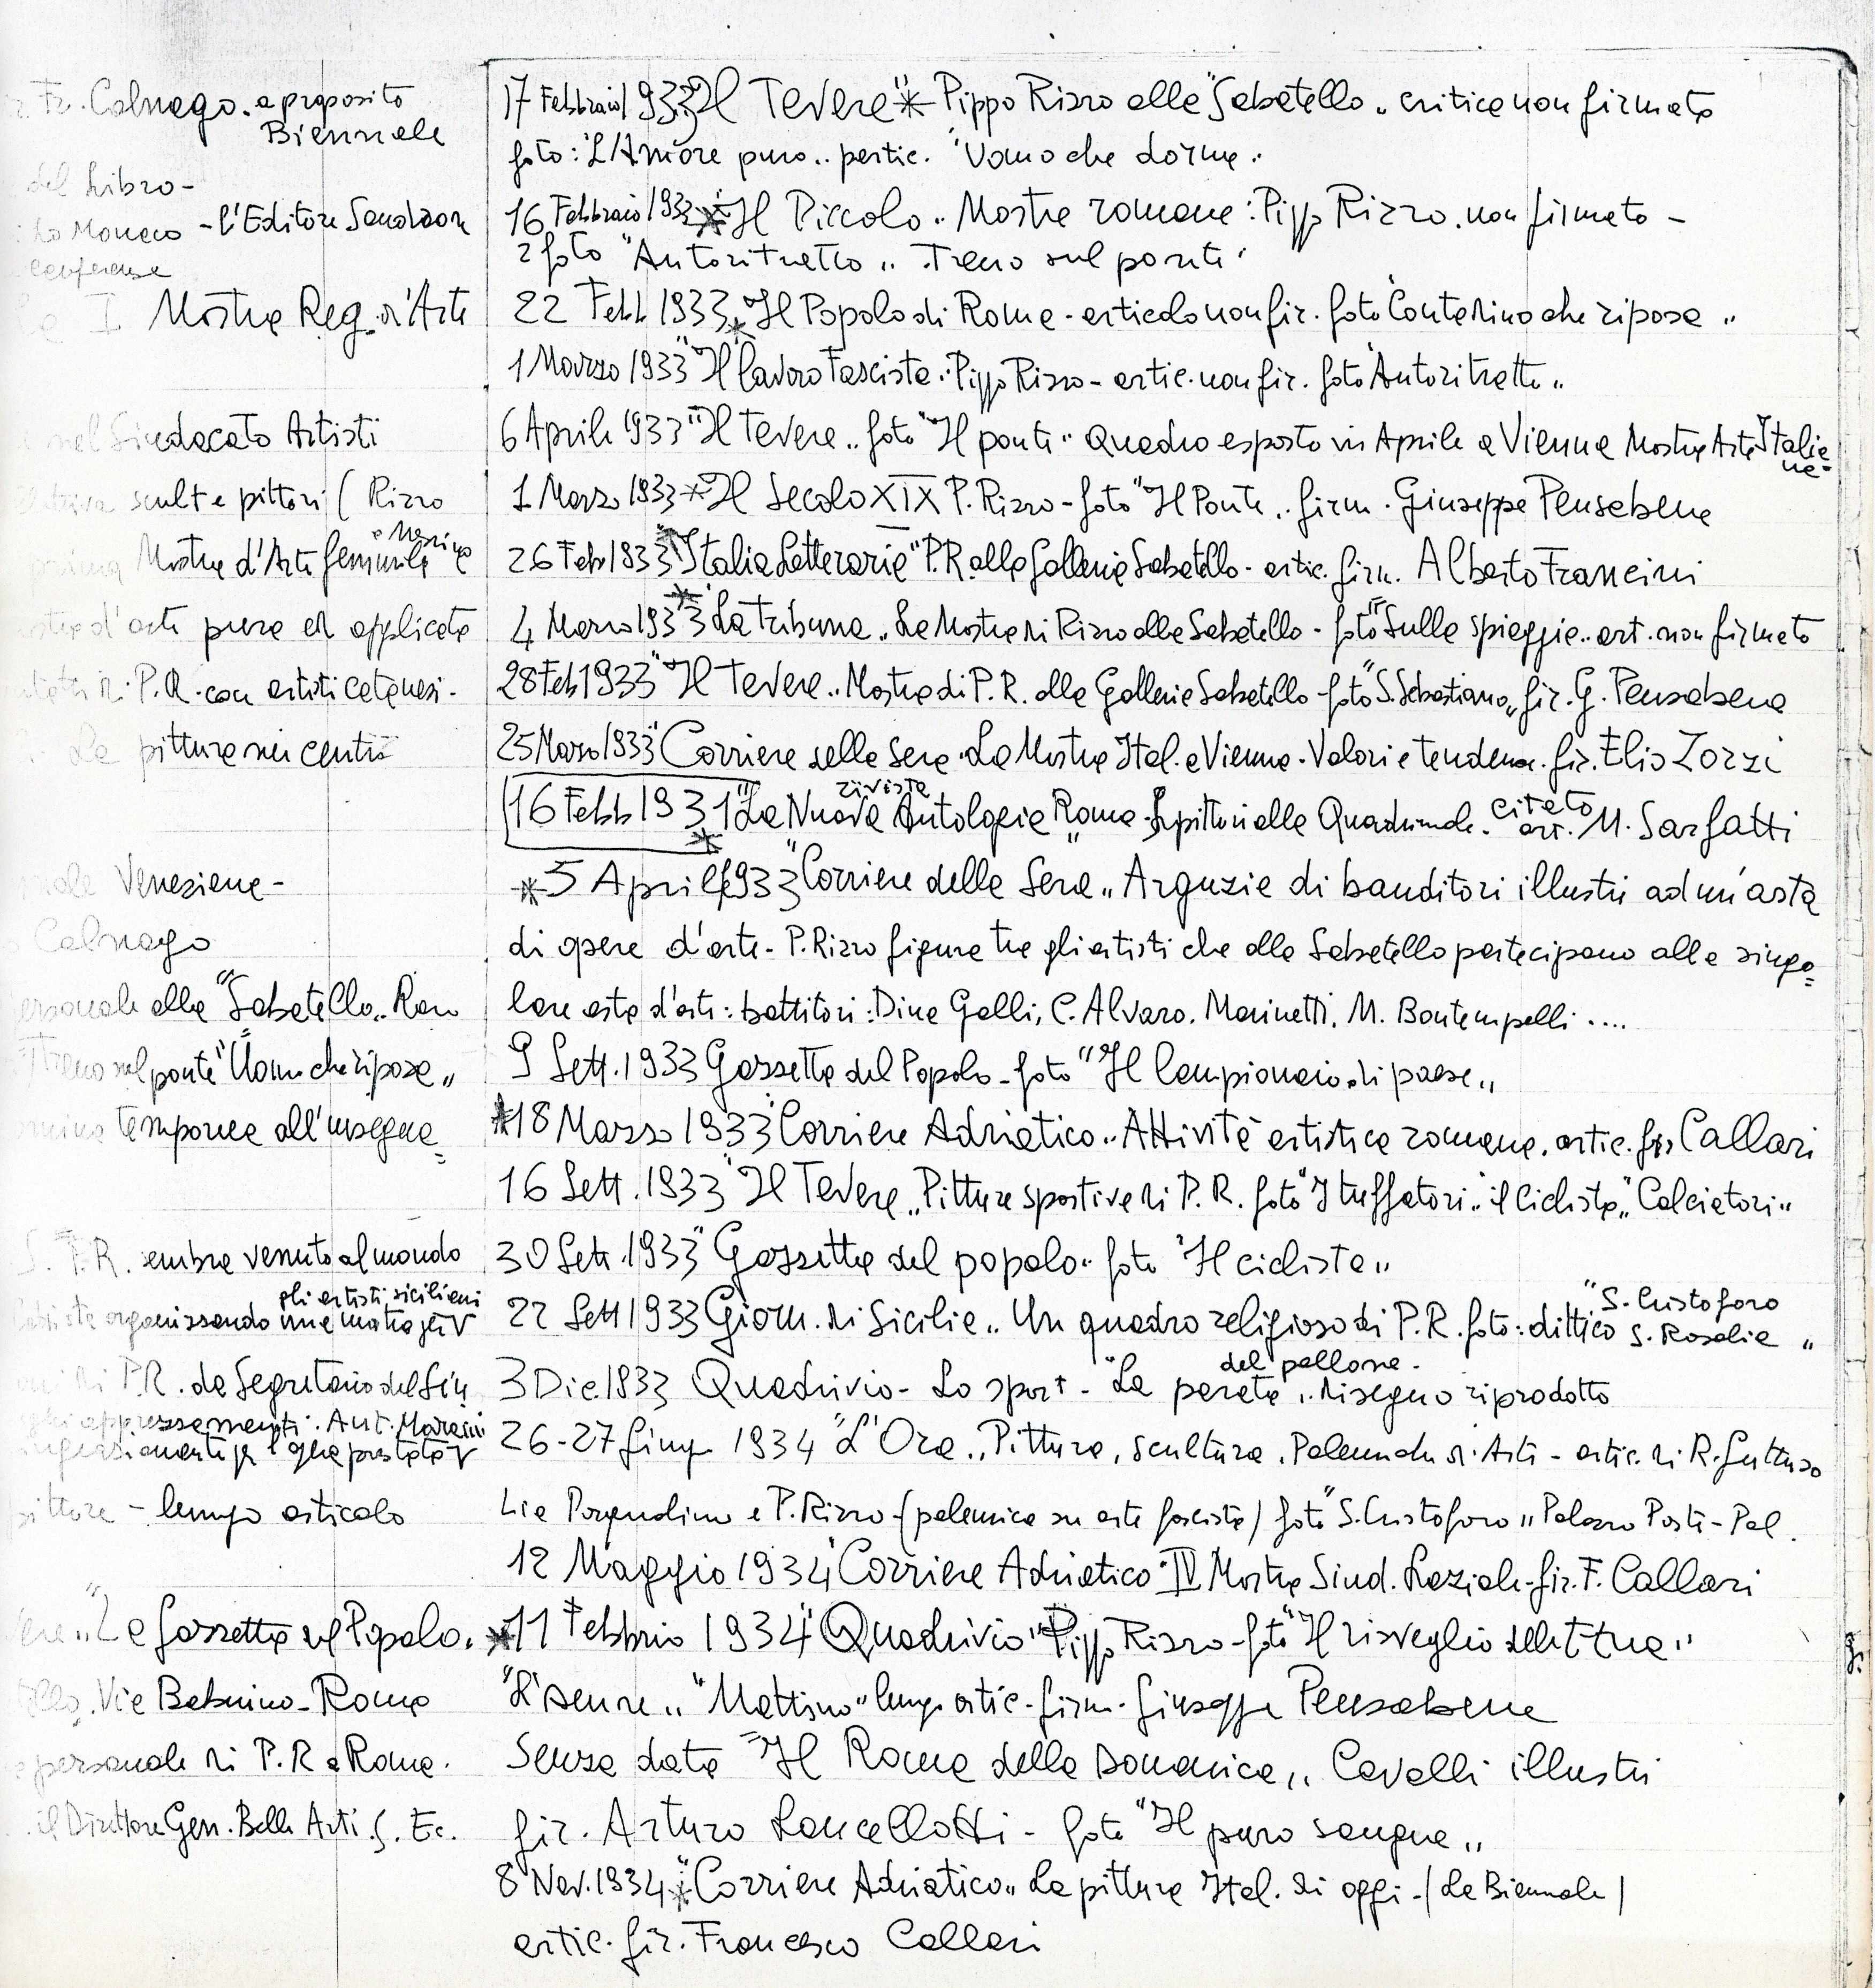 Fr. Calnago. a proposito
Biennale
del Libro -
Lo Monaco - l'Editore Sandron
conferenza
I Mostra Reg. d'Arte
nel Sindacato Artisti
scult e pittori ( Rizzo
e Messina
Mostra d'Arte femminile
d'arte pura ed applicata
P. R. con artisti catanesi -
La pittura nei centri
Veneziana -
Calnago
personale alla "Sabatello„ Rom
Treno sul ponte "Uomo che riposa„
temporanea all'insegna
S. P. R. sembra venuto al mondo
gli artisti siciliani
sta organizzando una mostra per
di P.R. da Segretario del Sin
apprezzamenti. Ant. Maraini
per l'opera prestata
pittore - lungo articolo
"La Gazzetta del Popolo.
Via Babuino - Roma
personale di P. R a Roma.
il Direttore Gen. Belle Arti S. Ec.
17 Febbraio 1933 "Il Tevere" * Pippo Rizzo alla "Sabatello„ critica non firmata
foto: "L'Amore puro„ partic. "Uomo che dorme„
16 Febbraio 1933 * "Il Piccolo„ Mostre romane: Pippo Rizzo. non firmato -
2 foto "Autoritratto„ Treno sul ponte"
22 Febb 1933 * Il Popolo di Roma - articolo non fir. foto "Contadino che riposa„
1 Marzo 1933 "Il lavoro Fascista„ Pippo Rizzo - artic. non fir. foto "Autoritratto„
6 Aprile 1933 "Il Tevere„ foto "Il ponte" quadro esposto in Aprile a Vienna Mostra Arte Italia=
na=
1 Marzo 1933 * Il Secolo XIX P. Rizzo - foto "Il Ponte„ firm. Giuseppe Pensabene
26 Feb 1933 * "Italia Letteraria" P.R alla Galleria Sabatello - artic. firm. Alberto Francini
4 Marzo 1933 * "La Tribuna„ La Mostra di Rizzo alla Sabatello - foto "Sulla spiaggia„ art. non firmato
28 Feb 1933 "Il Tevere„ Mostra di P. R. alla Galleria Sabatello - foto "S. Sebastiano„ fir. G. Pensabene
25 Marzo 1933 "Corriere della Sera. La Mostra Ital. a Vienna - Valori e tendenze. fir. Elio Zorzi
rivista
16 Febb 1931 * "La Nuova Antologia Roma„ I pittori alla Quadriennale. citato
art. M. Sarfatti
* 5 Aprile 1933 "Corriere della Sera„ Arguzie di banditori illustri ad un'asta
di opere d'arte - P. Rizzo figura tra gli artisti che alla Sabatello partecipano alla singo=
lare asta d'arte: battitori: Dina Galli, C. Alvaro. Marinetti. M. Bontempelli ....
9 Sett. 1933 Gazzetta del Popolo - foto "Il lampionaio di paese„
* 18 Marzo 1933 "Corriere Adriatico„ Attività artistica romana. artic. fir. Callari
16 Sett. 1933 "Il Tevere„ Pitture sportive di P. R. foto "I tuffatori„ "il Ciclista„ "Calciatori„
30 Sett. 1933 "Gazzetta del popolo„ foto "Il ciclista„
22 Sett 1933 Giorn. di Sicilia„ Un quadro religioso di P. R. foto: dittico "S. Cristoforo
S. Rosalia „
del pallone -
3 Dic. 1933 Quadrivio - Lo sport - "La parata „ disegno riprodotto
26-27 Giug 1934 "L'Ora„ Pittura, scultura. Palermo di Arti - artic. di R. Guttuso
Lia Pasqualino e P. Rizzo - (polemica su arte fascista) foto "S. Cristoforo„ Palazzo Poste - Pal.
12 Maggio 1934 "Corriere Adriatico" IV Mostra Sind. Laziale - fir. F. Callari
* 11 Febbrio 1934 "Quadrivio" Pippo Rizzo - foto "Il risveglio della terra„
"L'Isena„ "Mattino" lungo artic. firm. Giuseppe Pensabene
Senza data "Il Roma della Domenica„ Cavalli illustri
fir. Arturo Lancellotti - foto "Il puro sangue„
8 Nov. 1934 * "Corriere Adriatico„ La pittura Ital. di oggi - (La Biennale)
artic. fir. Francesco Callari